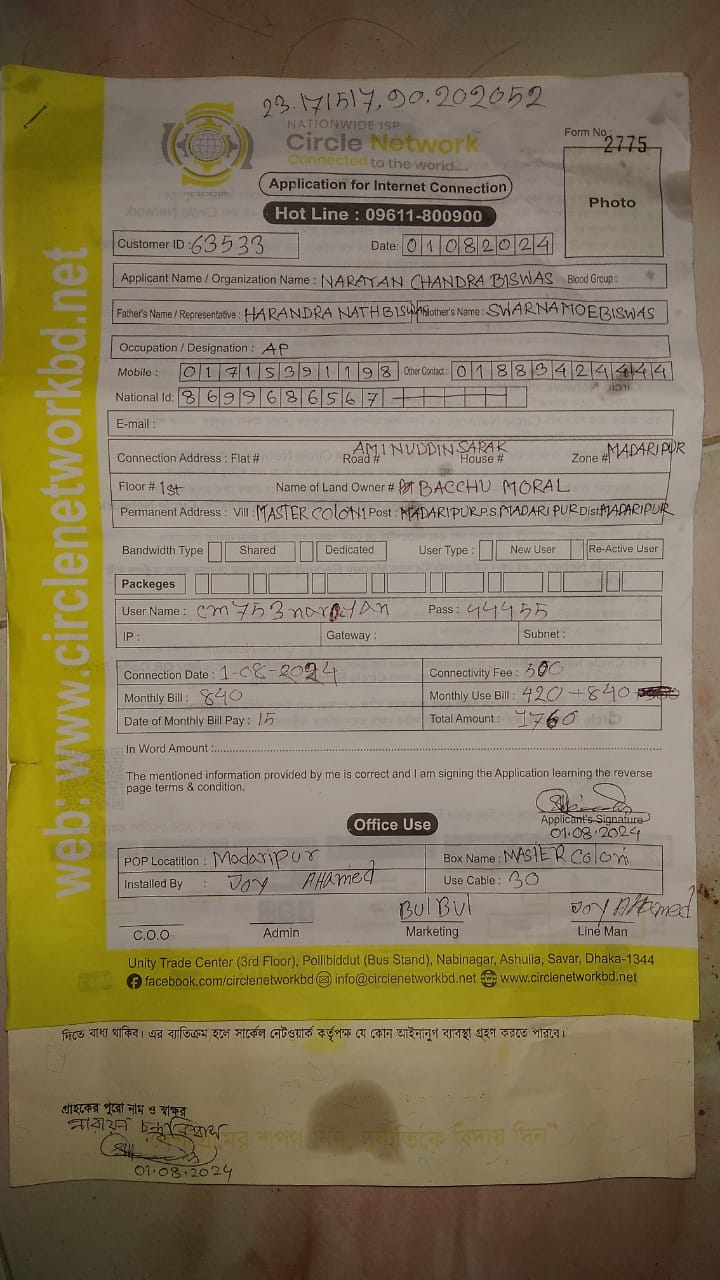 23.171517,90.202052
NATIONWIDE ISP
Circle Network
Connected to the world.....
Form No. 2775
Photo
Application for Internet Connection
Hot Line : 09611-800900
Customer ID : 63533 Date: 01082024
Applicant Name / Organization Name : NARAYAN CHANDRA BISWAS Blood Group :
Father's Name / Representative : HARANDRA NATH BISWAS Mother's Name : SWARNAMOEBISWAS
Occupation / Designation : AP
Mobile : 01715391198 Other Contact : 01883424444
National Id: 8699686567
E-mail :
Connection Address : Flat # Road # AMINUDDIN SARAK House # Zone # MADARIPUR
Floor # 1st Name of Land Owner # BACCHU MORAL
Permanent Address : Vill : MASTER COLONI Post : MADARIPUR P.S MADARIPUR Dist MADARIPUR
Bandwidth Type Shared Dedicated User Type : New User Re-Active User
Packeges
User Name : cm753narayan Pass : 44455
IP : Gateway : Subnet :
Connection Date : 1-08-2024 Connectivity Fee : 500
Monthly Bill : 840 Monthly Use Bill : 420+840
Date of Monthly Bill Pay : 15 Total Amount : 1760
In Word Amount :
The mentioned information provided by me is correct and I am signing the Application learning the reverse
page terms & condition.
Applicant's Signature
01.08.2024
Office Use
POP Locatition : Madaripur Box Name : MASTER Coloni
Installed By : JOY AHAmed Use Cable : 30
BUlBUl JOY AHAmed
C.O.O Admin Marketing Line Man
Unity Trade Center (3rd Floor), Pollibiddut (Bus Stand), Nabinagar, Ashulia, Savar, Dhaka-1344
facebook.com/circlenetworkbd info@circlenetworkbd.net www.circlenetworkbd.net
web: www.circlenetworkbd.net
দিতে বাধ্য থাকিব। এর ব্যতিক্রম হলে সার্কেল নেটওয়ার্ক কর্তৃপক্ষ যে কোন আইনানুগ ব্যবস্থা গ্রহণ করতে পারবে।
গ্রাহকের পুরো নাম ও স্বাক্ষর
নারায়ন চন্দ্র বিশ্বাস
01.08.2024